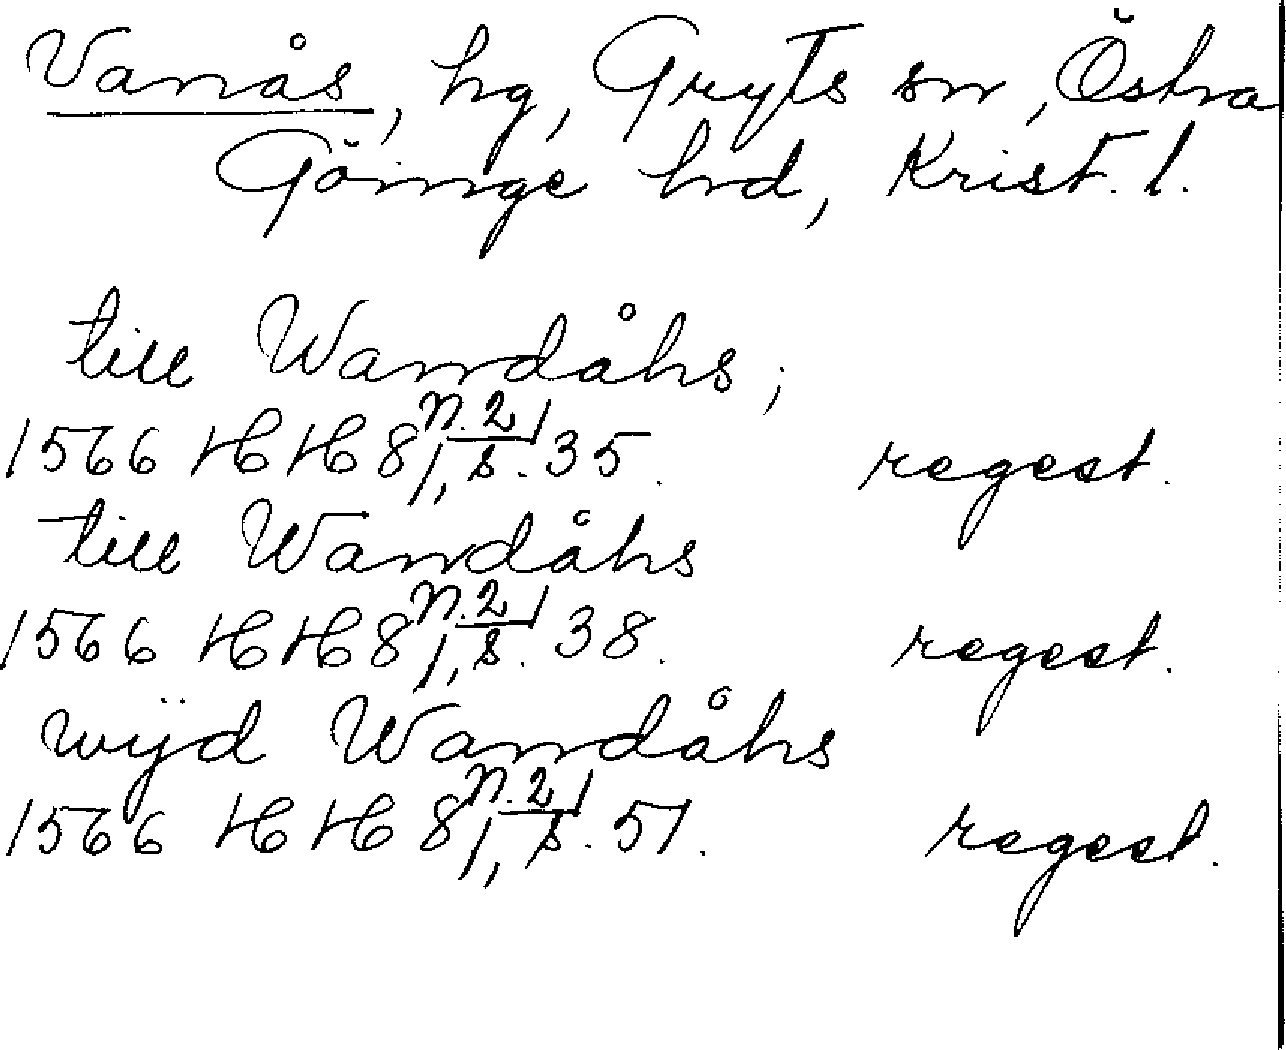 Vanås, hg, Gryts sn, Östra
Göinge hd, Krist. l.
till Wandåhs;
1566 HH 8, N. 2, 1, s. 35. regest.
till Wandåhs
1566 HH 8, N. 2, 1, s. 38. regest.
wijd Wandåhs
1566 HH 8, N. 2, 1, s. 51. regest.